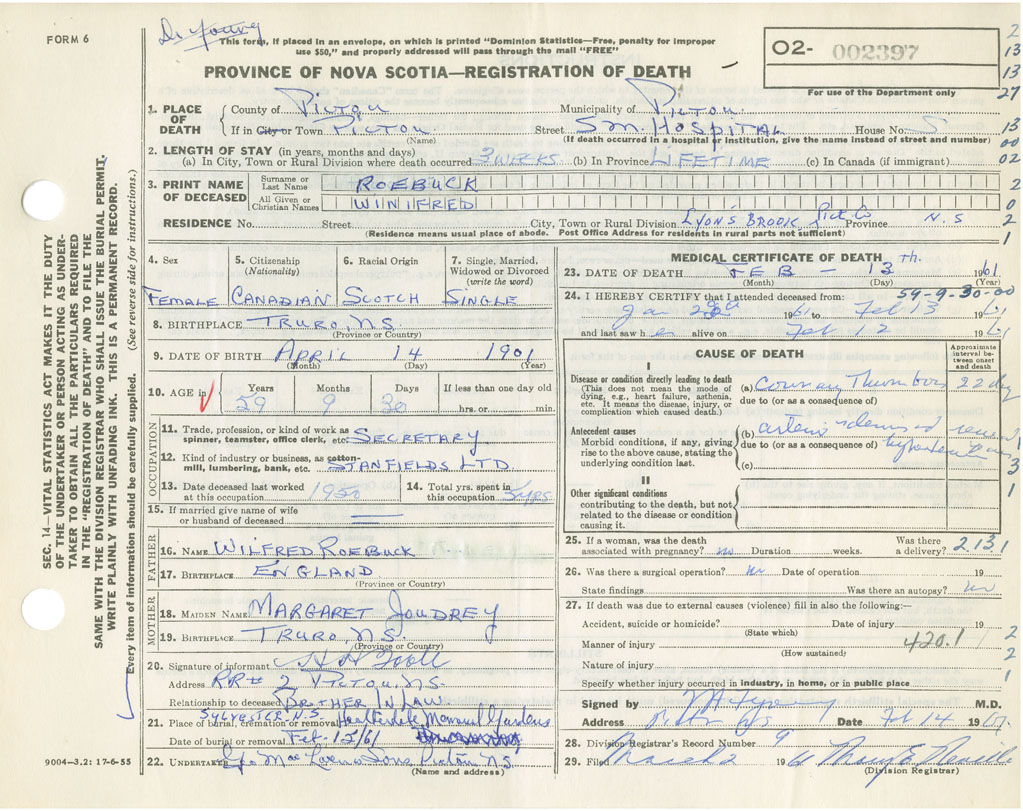 FORM 6
Dr Young
This form, if placed in an envelope, on which is printed "Dominion Statistics—Free, penalty for improper
use $50," and properly addressed will pass through the mail "FREE"
02- 002397
For use of the Department only
PROVINCE OF NOVA SCOTIA—REGISTRATION OF DEATH
1. PLACE OF DEATH County of Pictou Municipality of Pictou
If in City or Town Pictou (Name) Street Sm. Hospital House No. S
(If death occurred in a hospital or institution, give the name instead of street and number)
2. LENGTH OF STAY (in years, months and days)
(a) In City, Town or Rural Division where death occurred 3 WEEKS (b) In Province LIFETIME (c) In Canada (if immigrant)
3. PRINT NAME OF DECEASED Surname or Last Name ROEBUCK
All Given or Christian Names WINIFRED
RESIDENCE No. Street City, Town or Rural Division LYON'S BROOK Pict Co Province N.S
(Residence means usual place of abode. Post Office Address for residents in rural parts not sufficient)
4. Sex 5. Citizenship (Nationality) 6. Racial Origin 7. Single, Married, Widowed or Divorced (write the word)
FEMALE CANADIAN SCOTCH SINGLE
8. BIRTHPLACE TRURO, N.S. (Province or Country)
9. DATE OF BIRTH APRIL 14 1901
(Month) (Day) (Year)
10. AGE in Years Months Days If less than one day old
59 9 30 hrs. or min.
OCCUPATION
11. Trade, profession, or kind of work as spinner, teamster, office clerk, etc. SECRETARY
12. Kind of industry or business, as cotton-mill, lumbering, bank, etc. STANFIELDS LTD
13. Date deceased last worked at this occupation 1950 14. Total yrs. spent in this occupation 5yrs
15. If married give name of wife or husband of deceased
FATHER
16. NAME WILFRED ROEBUCK
17. BIRTHPLACE ENGLAND (Province or Country)
MOTHER
18. MAIDEN NAME MARGARET JOUDREY
19. BIRTHPLACE TRURO, N.S. (Province or Country)
20. Signature of informant
Address RR# 2 PICTOU, N.S.
Relationship to deceased BROTHER IN LAW
21. Place of burial, cremation or removal SYLVESTER N.S. Heatherdale Memorial Gardens
Date of burial or removal Feb 15/61
22. UNDERTAKER
(Name and address)
MEDICAL CERTIFICATE OF DEATH
23. DATE OF DEATH FEB - 13 Th. 1961
(Month) (Day) (Year)
59-9-30-00
24. I HEREBY CERTIFY that I attended deceased from:
Jan 1961 to Feb 13 1961
and last saw her alive on Feb 12 1961
CAUSE OF DEATH
Approximate interval between onset and death
I
Disease or condition directly leading to death (a) Coronary Thrombosis 22 day
(This does not mean the mode of dying, e.g., heart failure, asthenia, etc. It means the disease, injury, or complication which caused death.)
due to (or as a consequence of)
Antecedent causes (b)
Morbid conditions, if any, giving rise to the above cause, stating the underlying condition last.
due to (or as a consequence of)
(c)
II
Other significant conditions contributing to the death, but not related to the disease or condition causing it.
25. If a woman, was the death associated with pregnancy? no Duration weeks. Was there a delivery? 2131
26. Was there a surgical operation? no Date of operation 19
State findings Was there an autopsy? no
27. If death was due to external causes (violence) fill in also the following:—
Accident, suicide or homicide? (State which) Date of injury 19
Manner of injury (How sustained) 420.1
Nature of injury
Specify whether injury occurred in industry, in home, or in public place
Signed by M.D.
Address Pictou NS Date Feb 14 1961
28. Division Registrar's Record Number 9
29. Filed March 2 1961
(Division Registrar)
SEC. 14—VITAL STATISTICS ACT MAKES IT THE DUTY
OF THE UNDERTAKER OR PERSON ACTING AS UNDER-
TAKER TO OBTAIN ALL THE PARTICULARS REQUIRED
IN THE "REGISTRATION OF DEATH" AND TO FILE THE
SAME WITH THE DIVISION REGISTRAR WHO SHALL ISSUE THE BURIAL PERMIT.
WRITE PLAINLY WITH UNFADING INK. THIS IS A PERMANENT RECORD.
Every item of information should be carefully supplied. (See reverse side for instructions.)
9004—3.2: 17-6-55
2
13
13
27
13
00
02
2
0
2
1
1
3
1
2
2
1